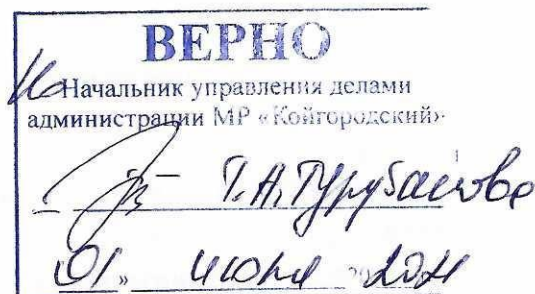 ВЕРНО
Начальник управления делами
администрации МР «Койгородский»
Т.А.
01 » июня 20